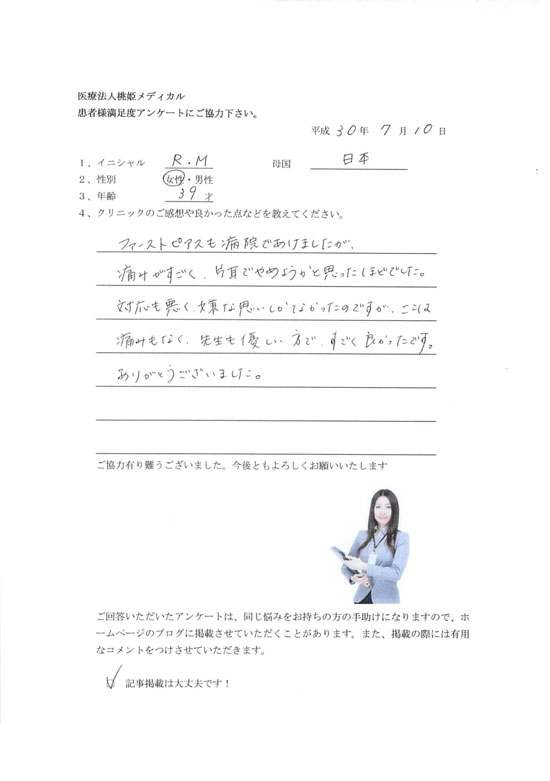 医療法人桃姫メディカル
患者様満足度アンケートにご協力下さい。
平成 30 年 7 月 10 日
1、イニシャル R.M 母国 日本
2、性別 女性・男性
3、年齢 39 才
4、クリニックのご感想や良かった点などを教えてください。
ファーストピアスも病院であけましたが、
痛みがすごく、片耳でやめようかと思ったほどでした。
対応も悪く、嫌な思いしかなかったのですが、ここは
痛みもなく、先生も優しい方で、すごく良かったです。
ありがとうございました。
ご協力有り難うございました。今後ともよろしくお願いいたします
ご回答いただいたアンケートは、同じ悩みをお持ちの方の手助けになりますので、ホ
ームページのブログに掲載させていただくことがあります。また、掲載の際には有用
なコメントをつけさせていただきます。
記事掲載は大丈夫です！